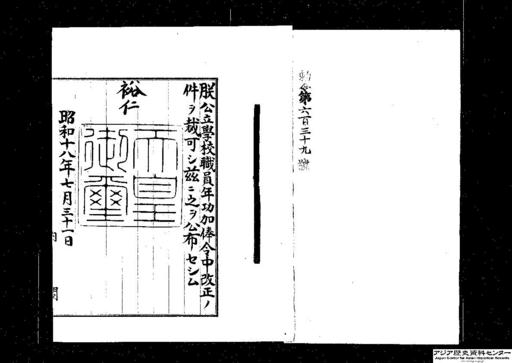 勅令第六百三十九號
朕公立學校職員年功加俸令中改正ノ
件ヲ裁可シ茲ニ之ヲ公布セシム
裕仁
天皇御璽
昭和十八年七月三十一日
内閣
アジア歴史資料センター
Japan Center for Asian Historical Records